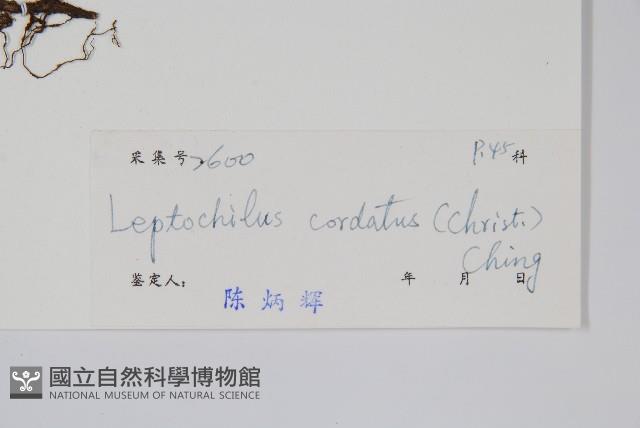 采集号 2600 P.45 科
Leptochilus cordatus (Christ.)
Ching
鉴定人: 陈炳辉 年 月 日
國立自然科學博物館
NATIONAL MUSEUM OF NATURAL SCIENCE